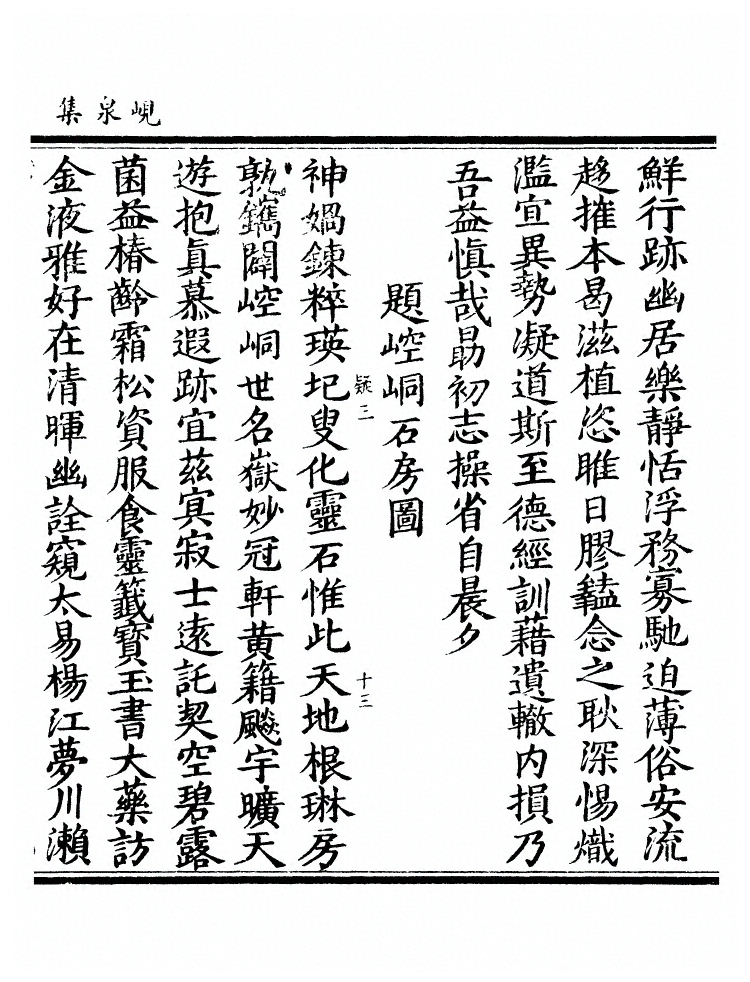 峴泉集
鮮行跡幽居樂靜恬浮務寡馳迫薄俗安流
趍搉本曷滋植恣睢日膠轕念之耿深惕熾
濫宣異勢凝道斯至德經訓藉遺轍内損乃
吾益慎哉勗初志操省自晨夕
題崆峒石房圖
神媧鍊粹瑛圯叟化靈石惟此天地根琳房
孰鐫闢崆峒世名嶽妙冠軒黄籍飈宇曠天
遊抱真慕遐跡宜兹寘寂士逺託契空碧露
菌益椿齡霜松資服食靈籤寳玉書大藥訪
金液雅好在清暉幽詮窺太易楊江夢川瀨
疑三
十三